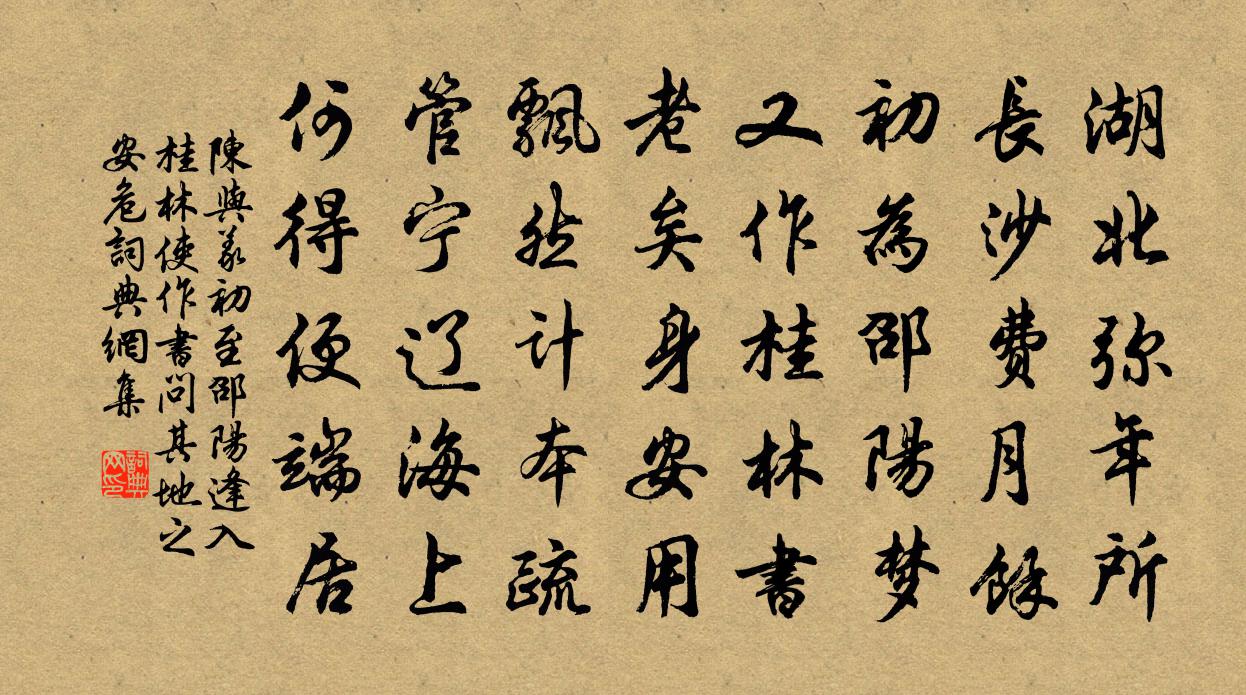 湖北弥年所
長沙費月餘
初為邵陽梦
又作桂林書
老矣身安用
飄然计本疏
管宁辽海上
何得便端居
陳與義初至邵陽逢入
桂林使作書問其地之
安危詞典網集
詞典
网印